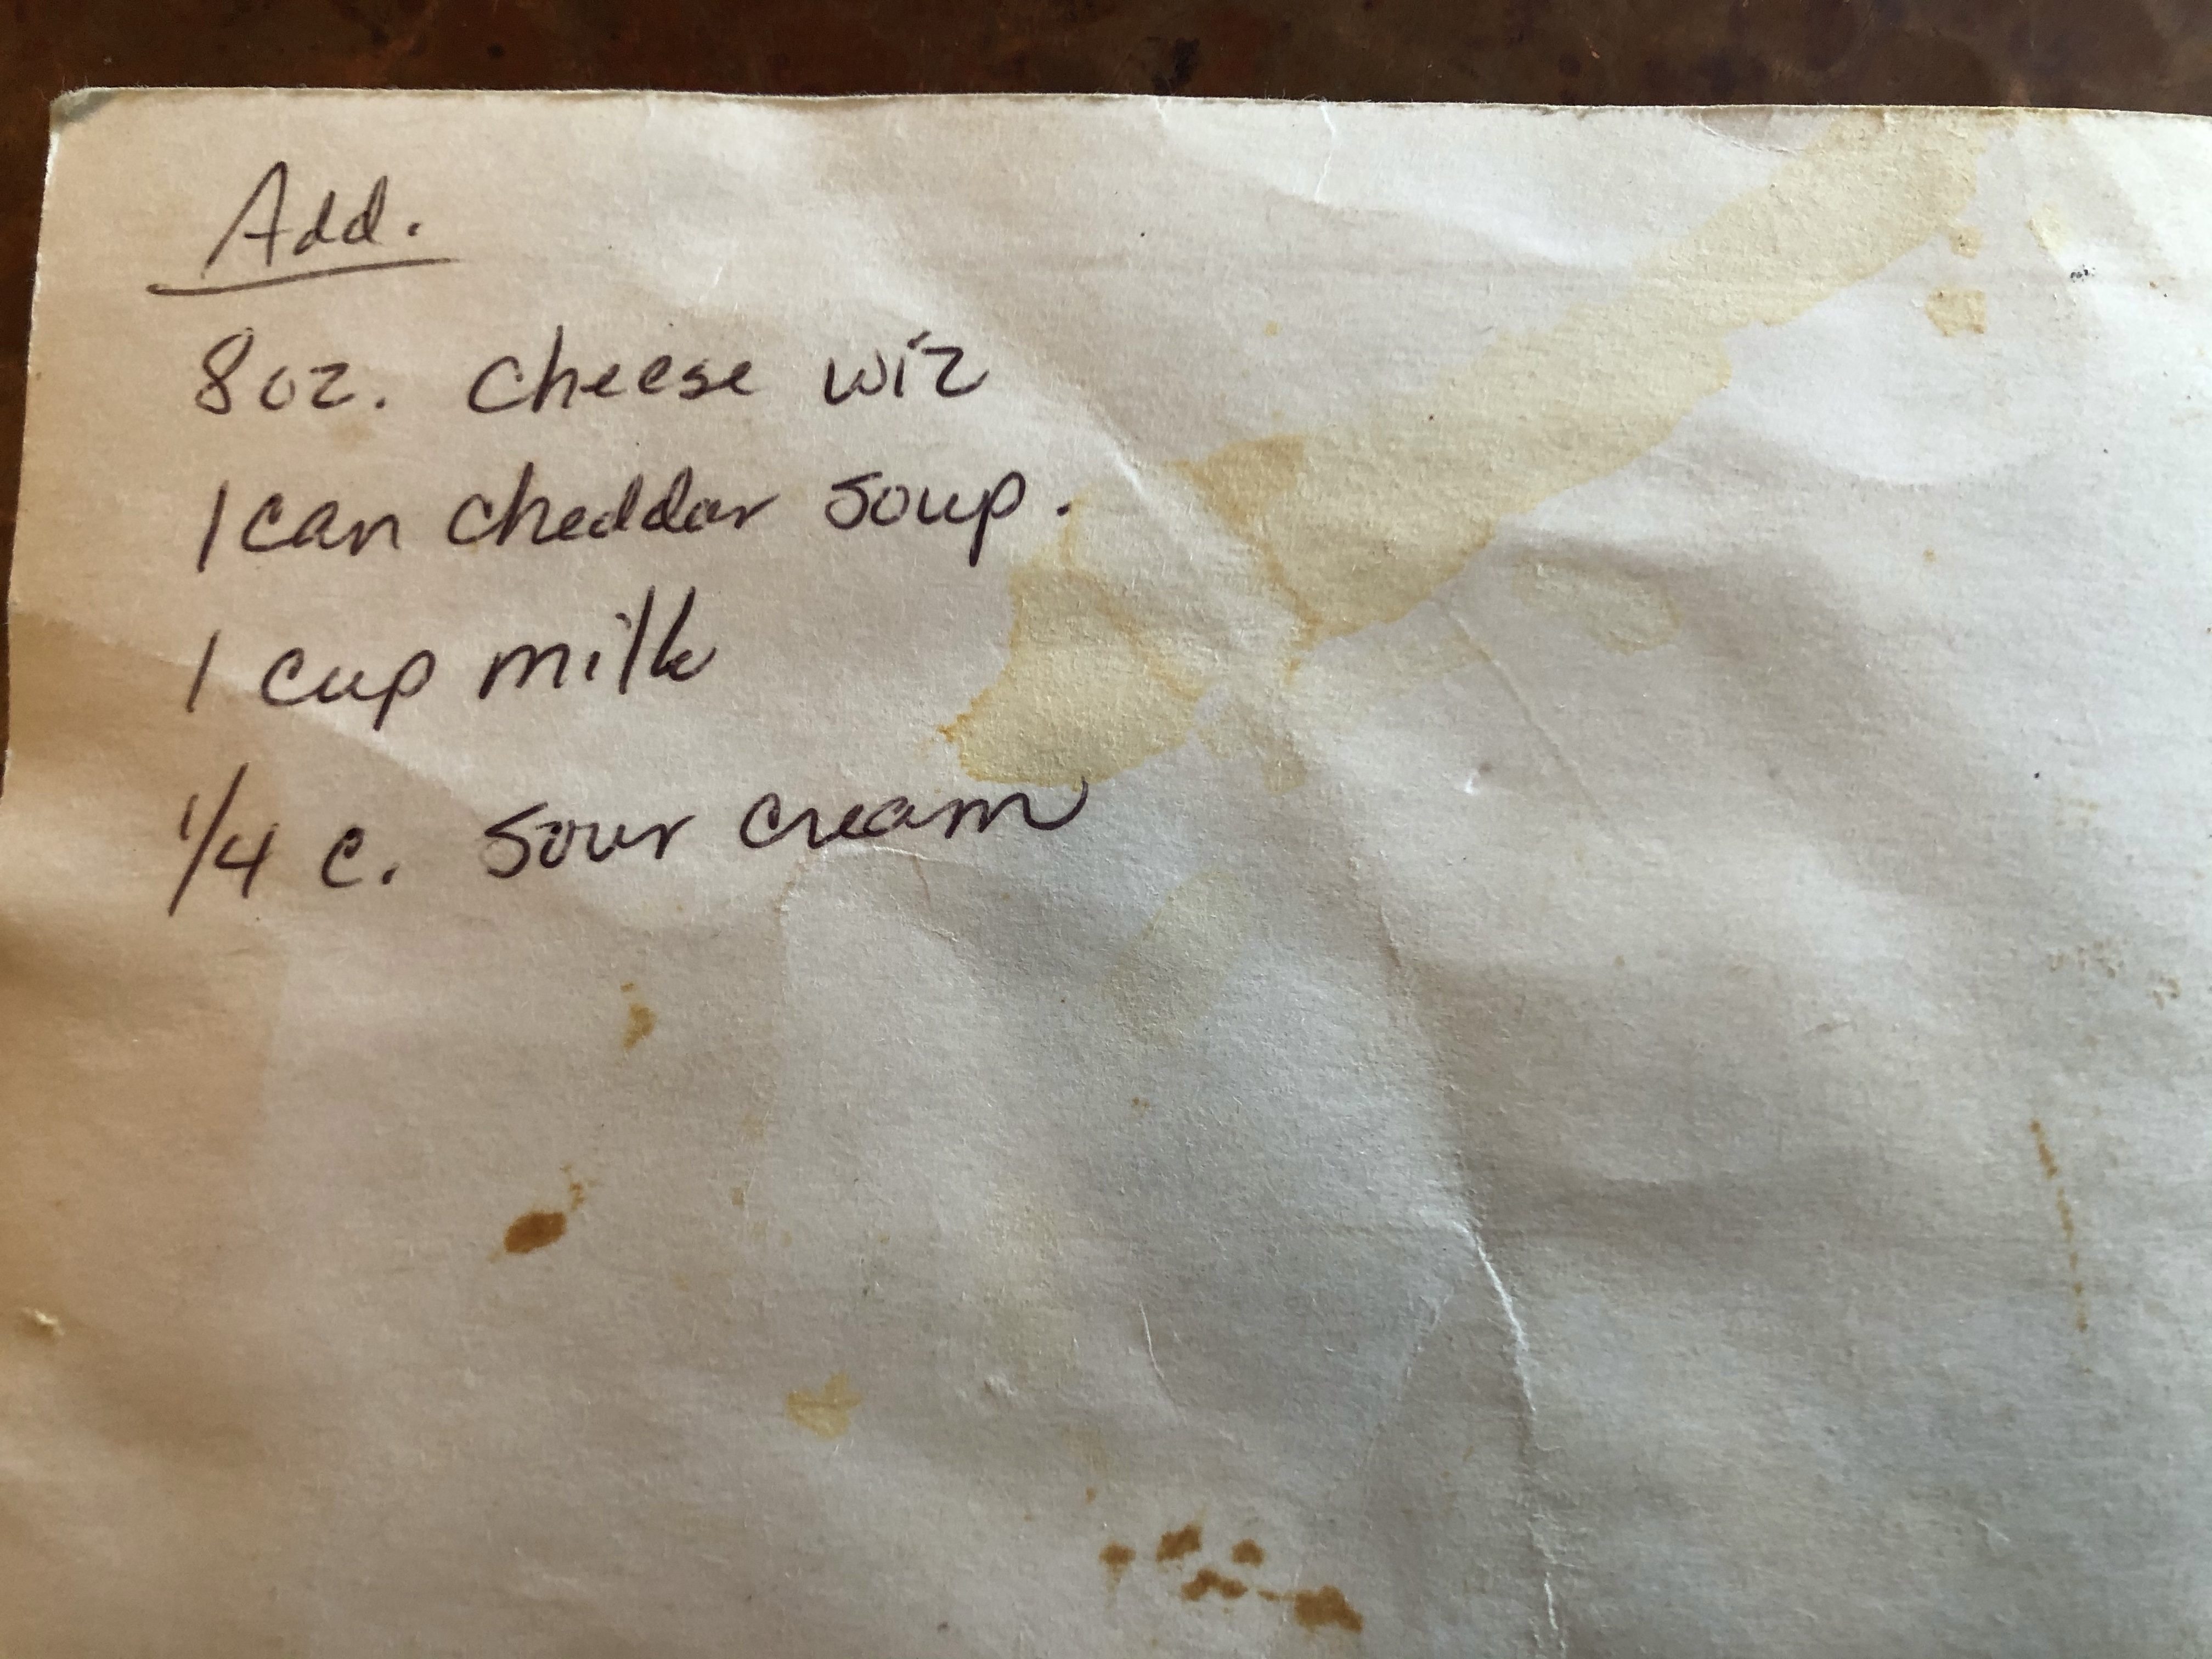 Add.
8 oz. cheese wiz
1 can cheddar soup.
1 cup milk
1/4 c. sour cream